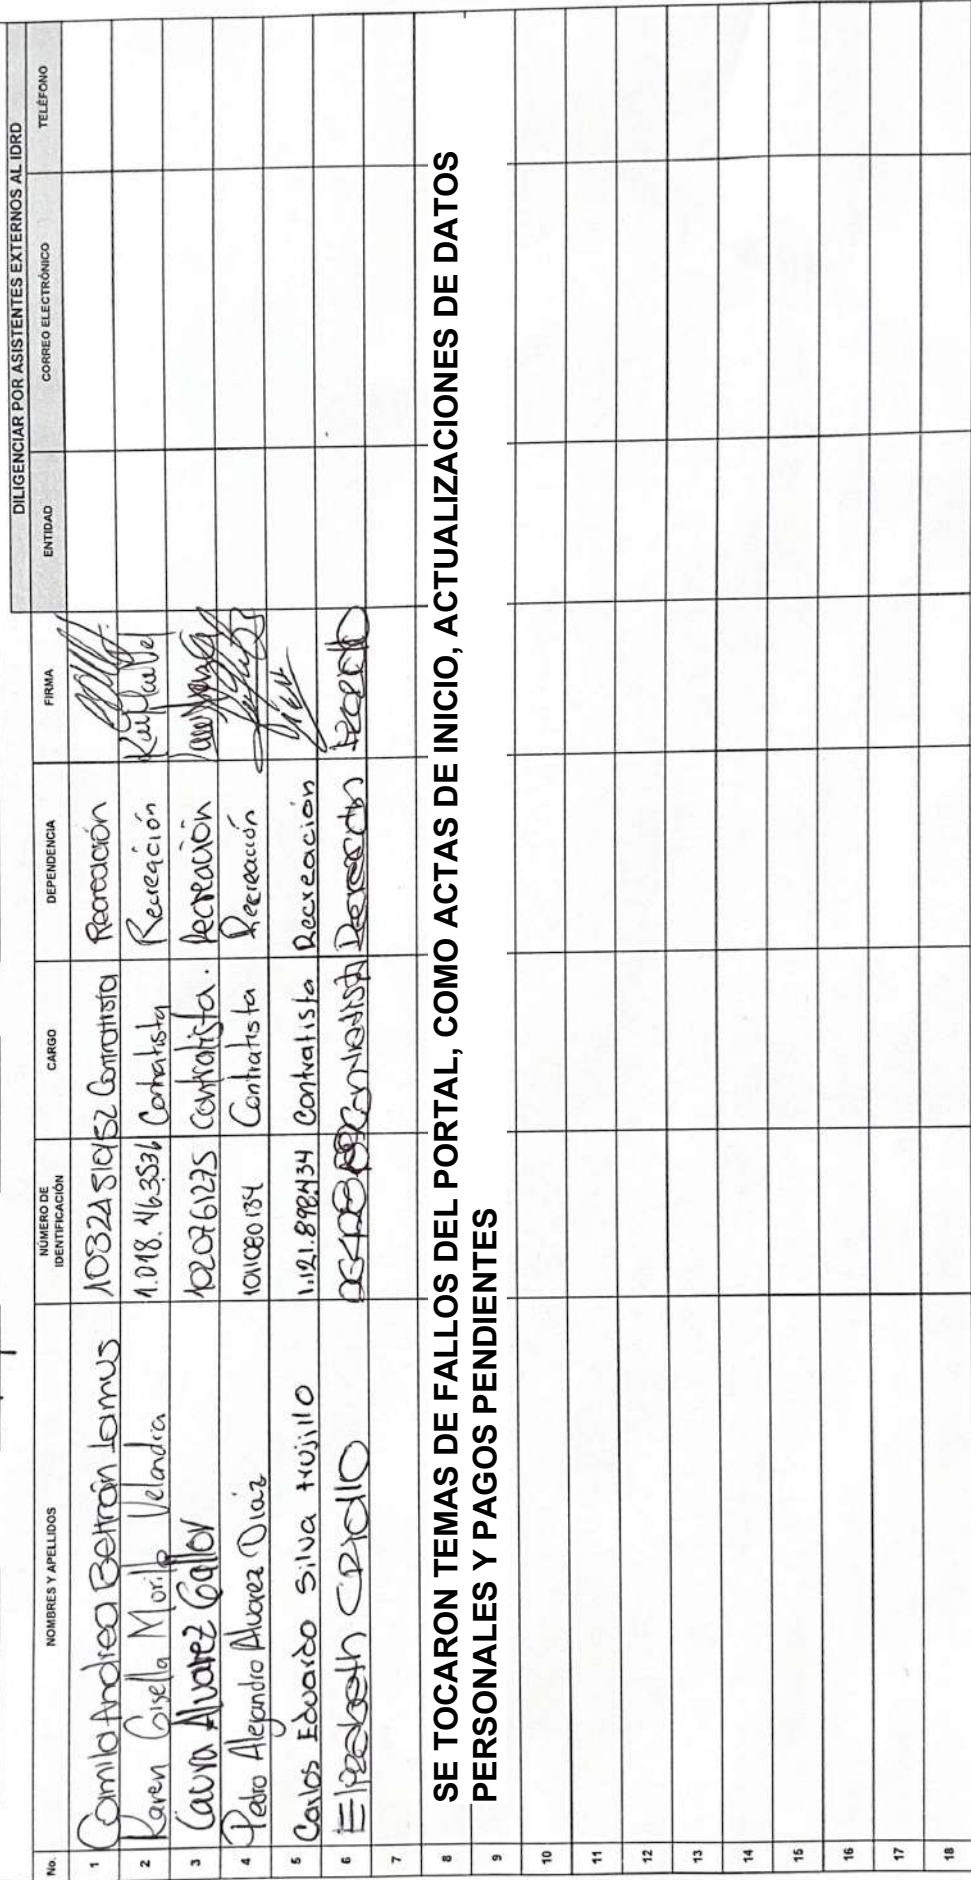 DILIGENCIAR POR ASISTENTES EXTERNOS AL IDRD
No. NOMBRES Y APELLIDOS NÚMERO DE IDENTIFICACIÓN CARGO DEPENDENCIA FIRMA ENTIDAD CORREO ELECTRÓNICO TELÉFONO
1 Camila Andrea Beltrán Lamus Contratista Recreación
2 Karen Gisella Morillo Velandia 1.018.463.536 Contratista Recreación
3 Laura Alvarez 1020761275 Contratista. Recreación
4 Pedro Alejandro Alvarez Diaz 1011080134 Contratista Recreación
5 Carlos Eduardo Silva trujillo 1.121.898.434 Contratista Recreación
6 Elizabeth Criollo Contratista
7
8
SE TOCARON TEMAS DE FALLOS DEL PORTAL, COMO ACTAS DE INICIO, ACTUALIZACIONES DE DATOS
PERSONALES Y PAGOS PENDIENTES
9
10
11
12
13
14
15
16
17
18